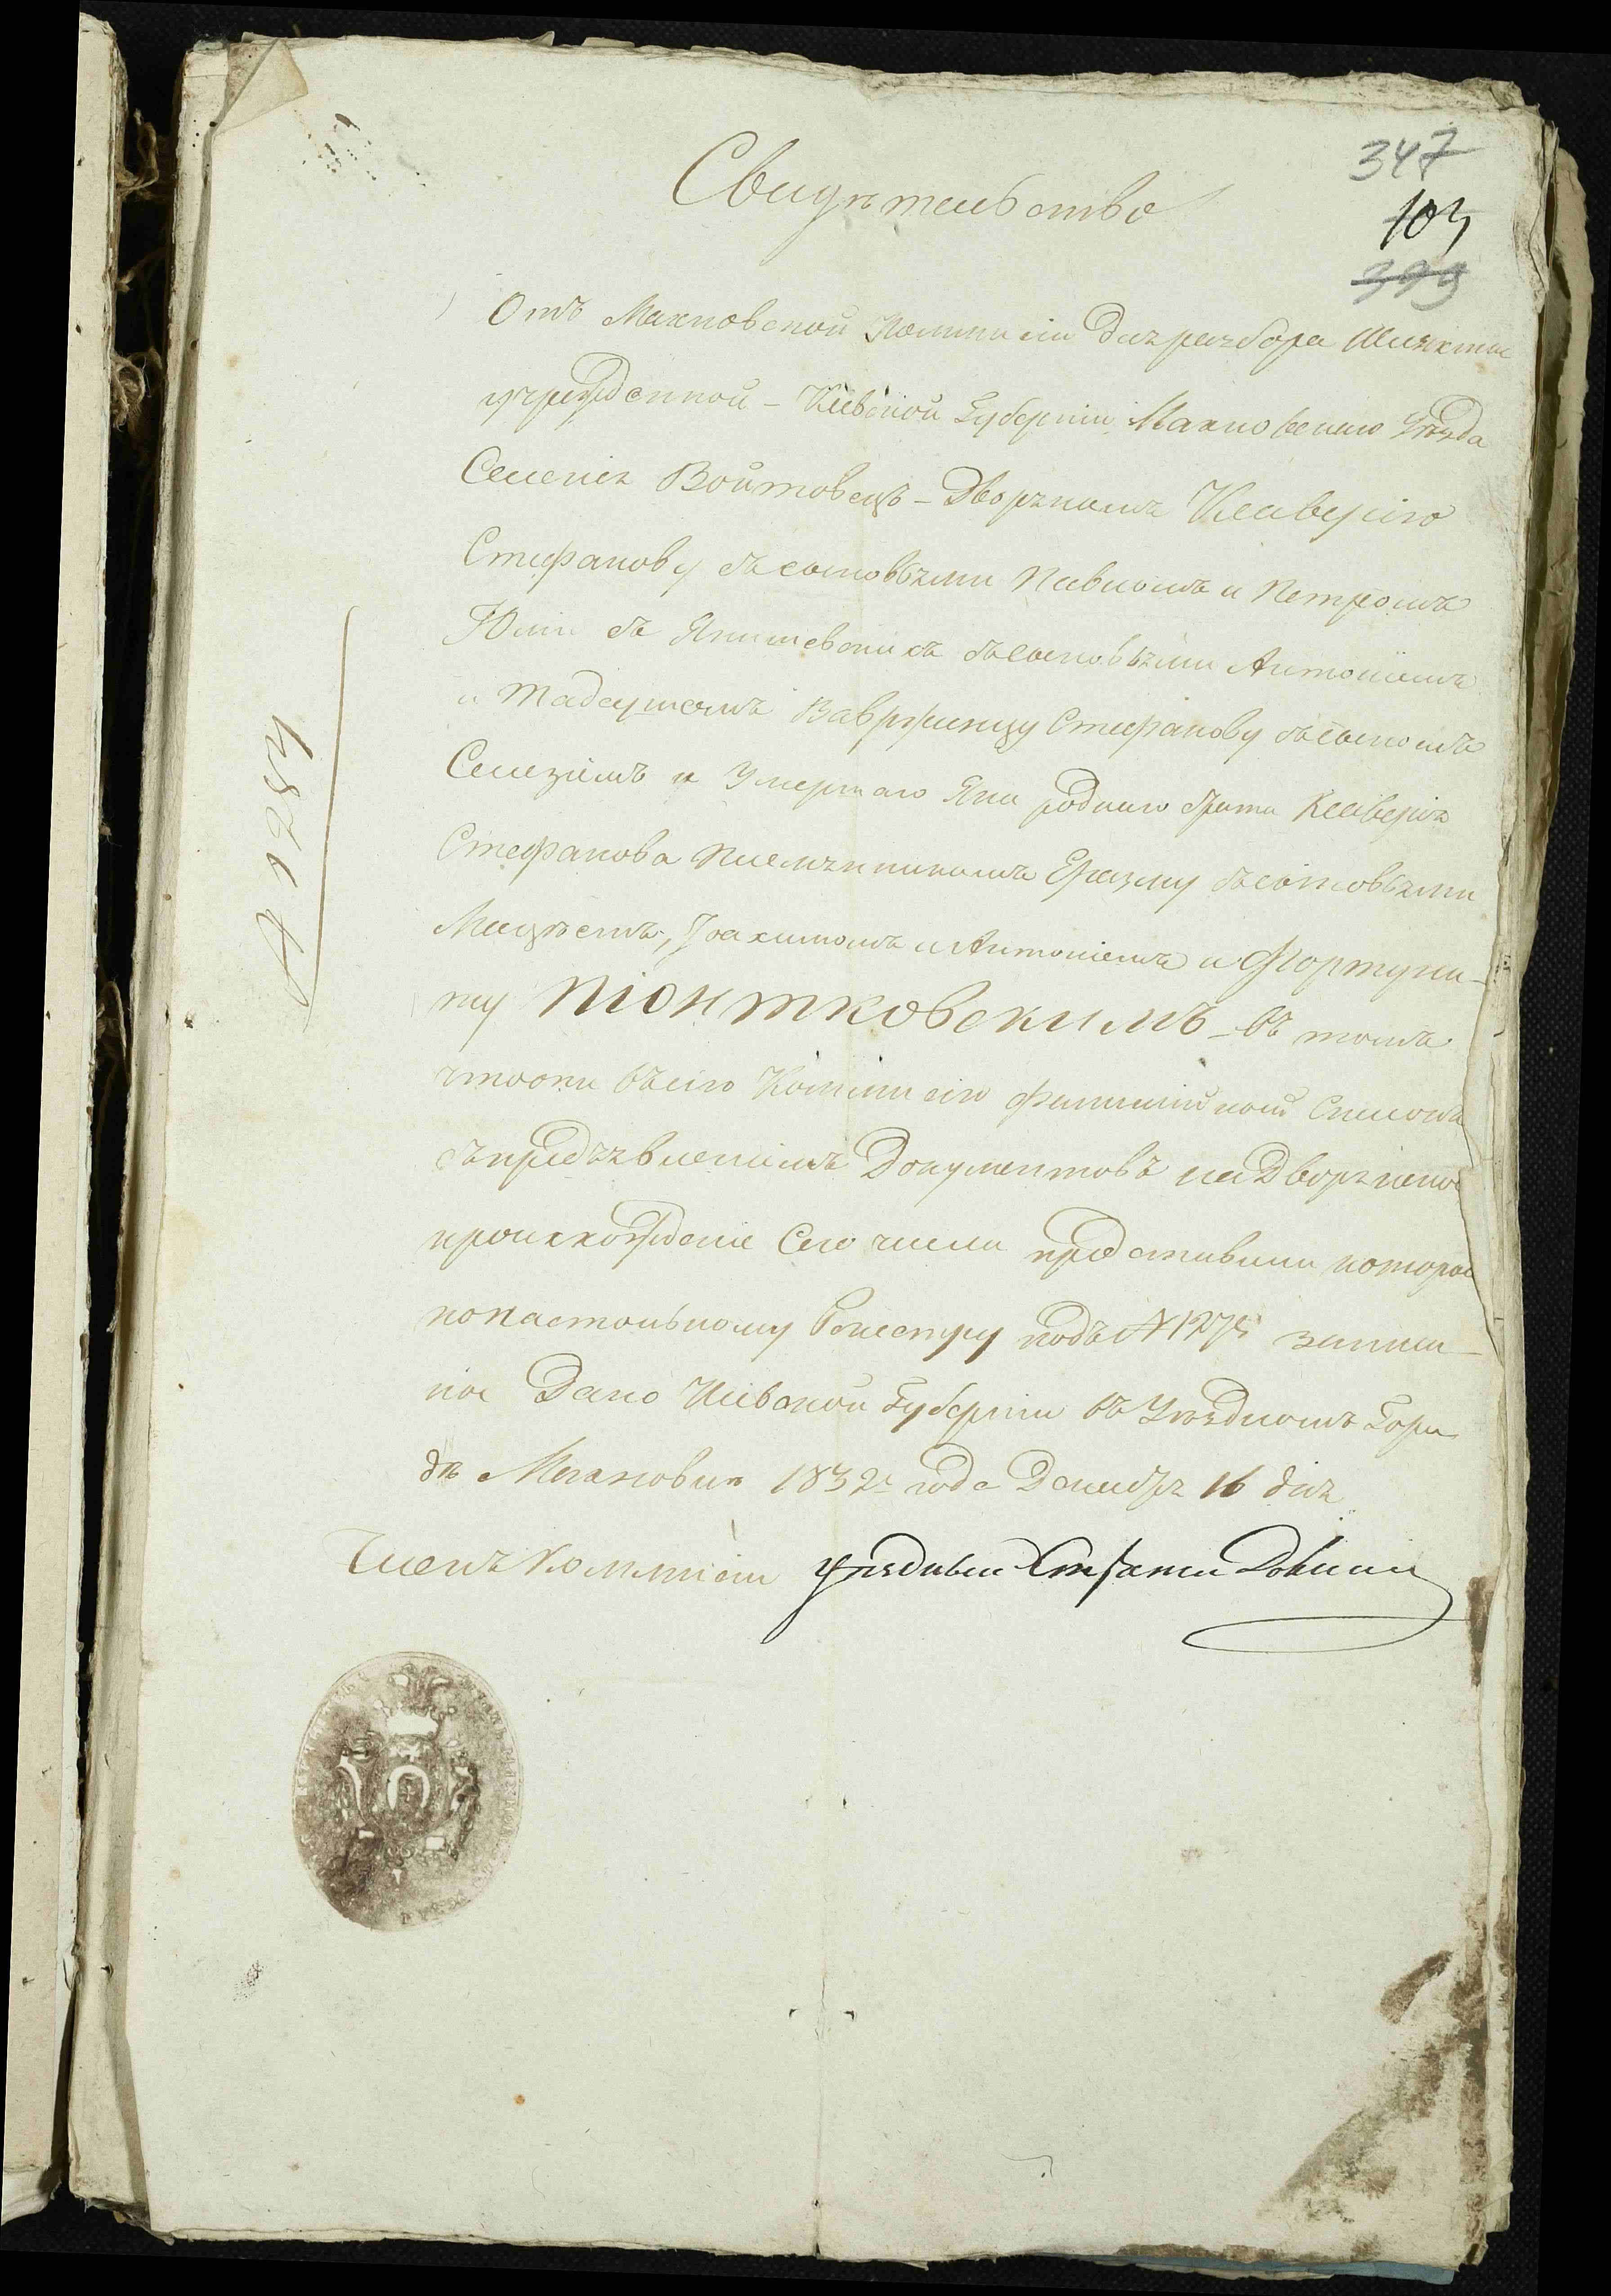 347
103
379
Свидѣтельство
Отъ Махновской Коммисіи для разбора Шляхты
учрежденной - Кіевской Губерніи Махновскаго Уѣзда
Селенія Войтовецъ - Дворянамъ Ксаверію
Стефанову съ сыновьями Павломъ и Петромъ
съ сыновьями Антоніемъ
и Тадеушомъ Вавржинцу Стефанову съ сыномъ
и Умершаго Яна роднаго брата Ксаверія
Стефанова племянникамъ Еразму съ сыновьями
Мацѣемъ, Іоахимомъ и Антоніемъ и Фортуна-
ту Піонтковскимъ - въ томъ
что они въ сію Коммисію Фамилійной Списокъ
съ предъявленіемъ Документовъ на Дворянское
происхожденіе Сего числа представили которое
по настольному Реестру подъ № 1275 записа-
но Дано Кіевской Губерніи въ Уѣздномъ Горо
дѣ Махновкѣ 1832 года Декабря 16 дня
Членъ Коммисіи уѣздный
№ 1284